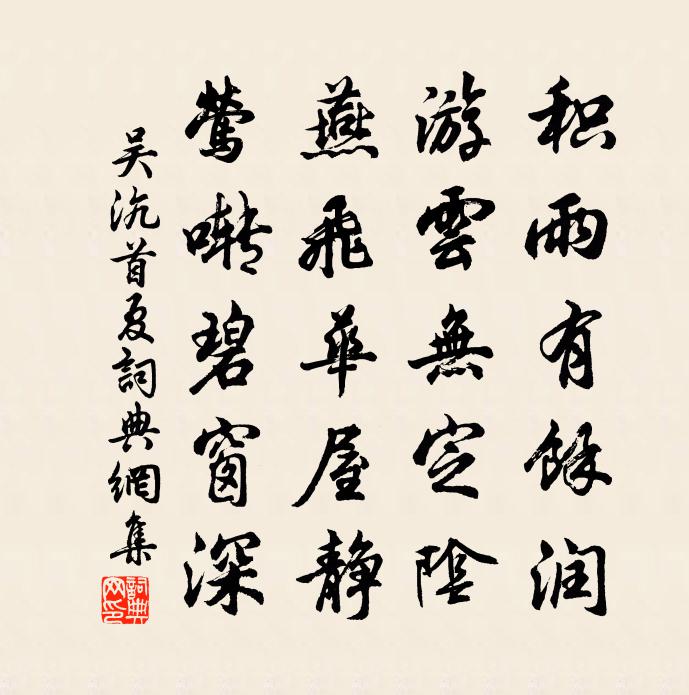 积雨有餘润
游雲無定陰
燕飛華屋静
鶯囀碧窗深
吴沉首夏詞典網集
詞典網印